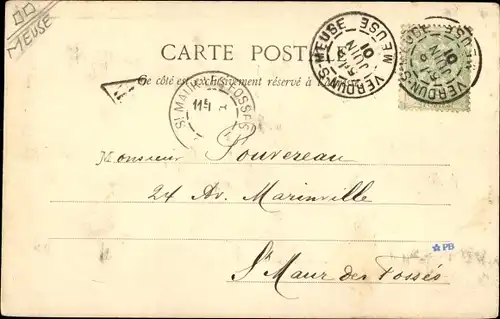 MEUSE
CARTE POST
Ce côté est exclusivement réservé à l'
VERDUN-S-MEUSE MEUSE
JUIN 01
VERDUN-S-MEUSE MEUSE
JUIN 01
ST MAUR LES FOSSES
114
Monsieur Pouvereau
24 Av. Marinville
St Maur des Fossés
PB